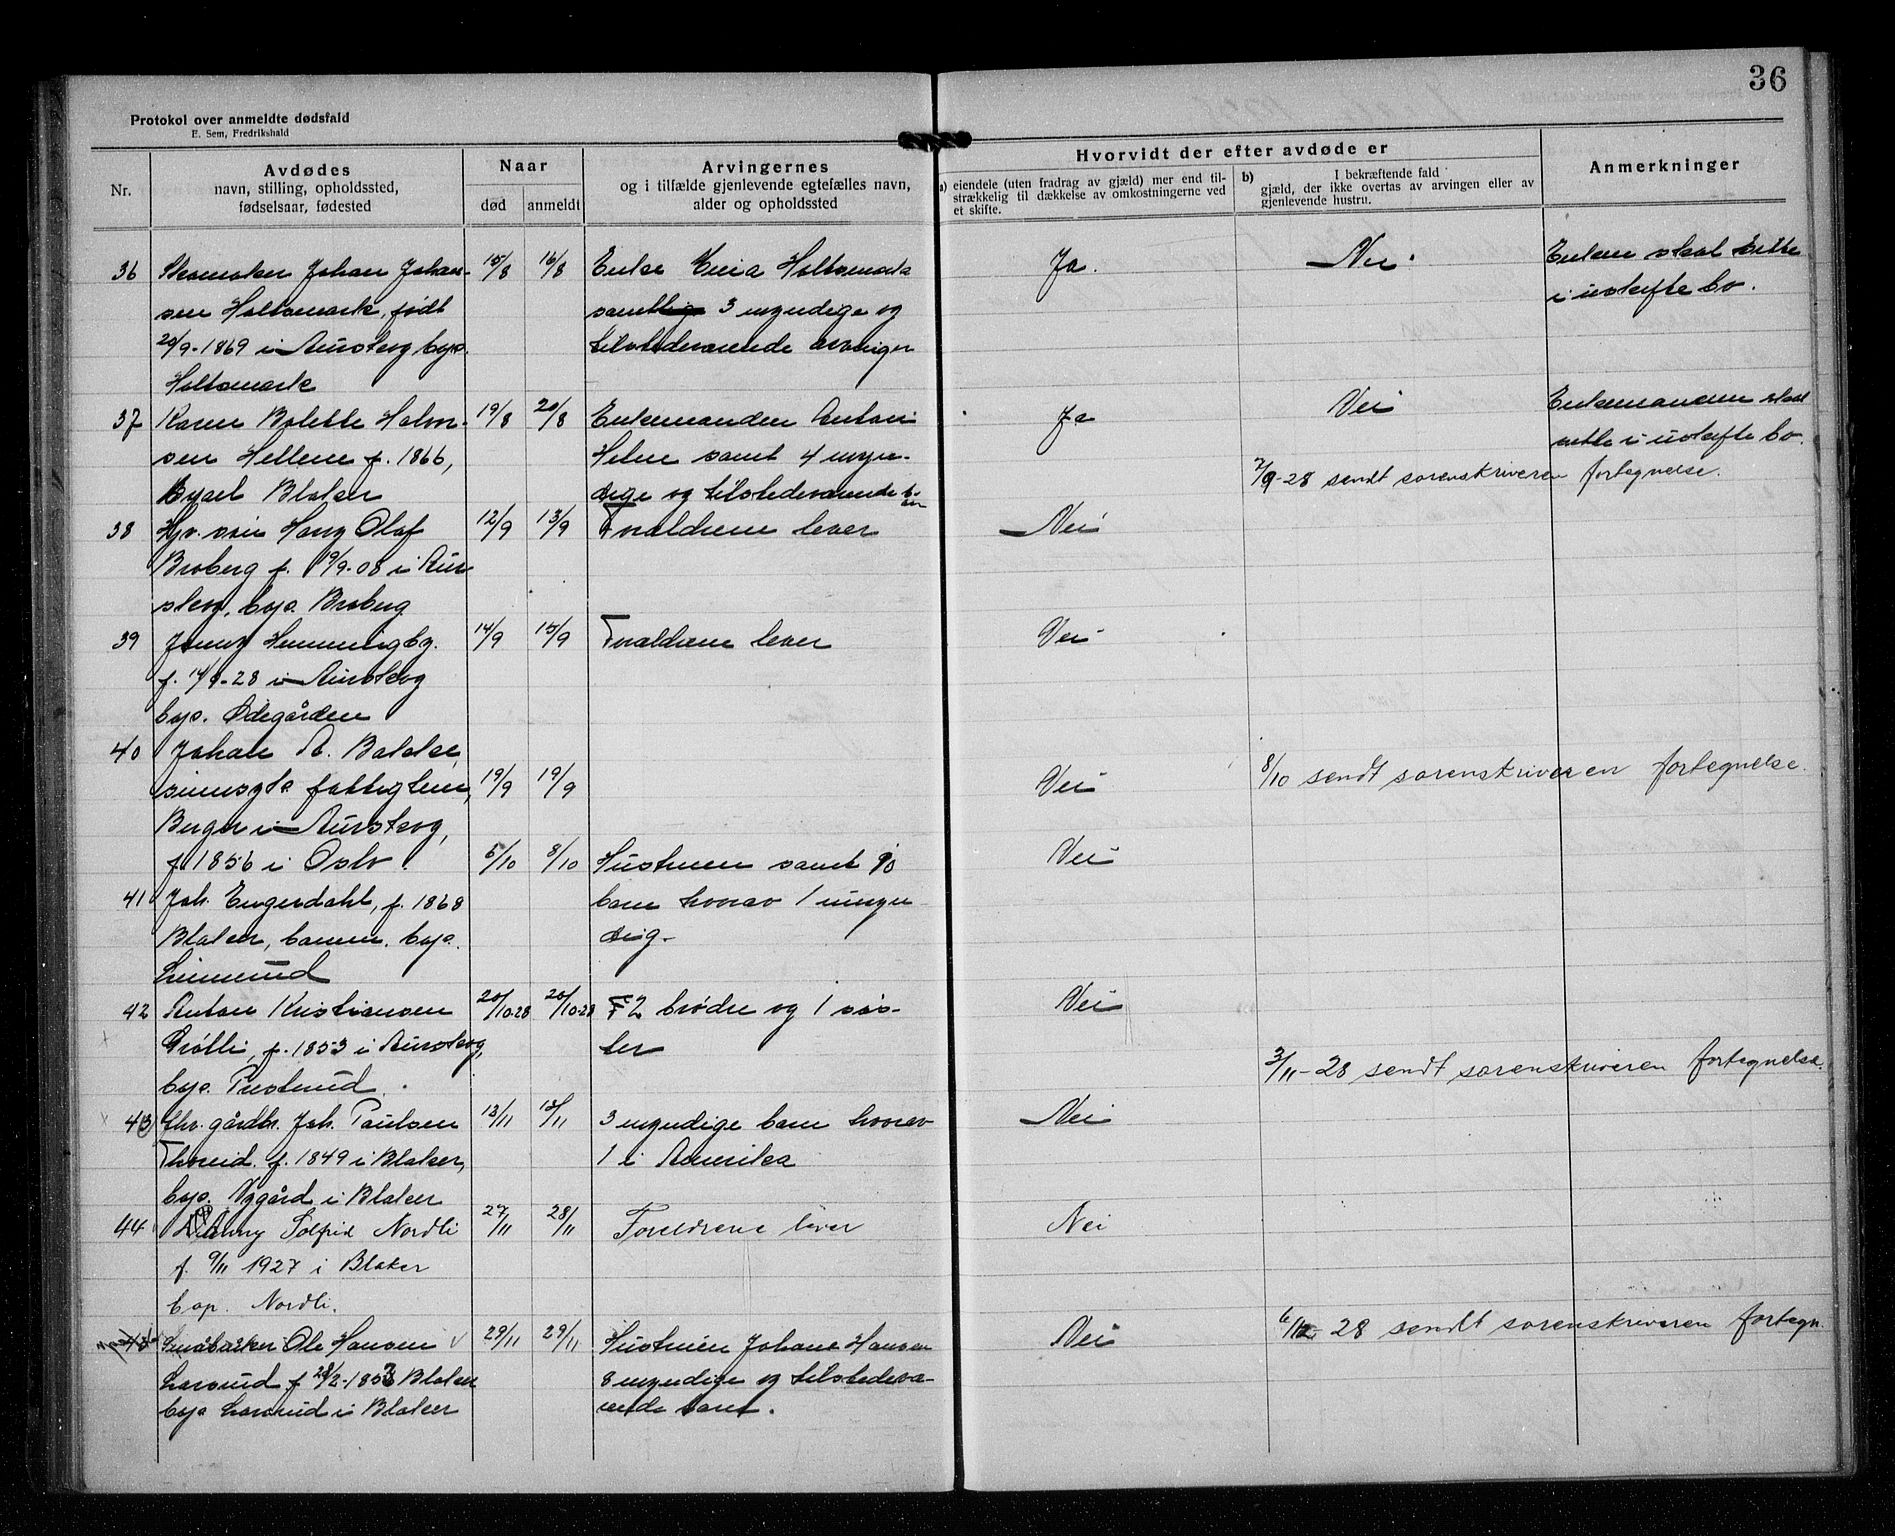 36
Protokol over anmeldte dødsfald
E. Sem, Fredrikshald
Nr.
Avdødes
navn, stilling, opholdssted,
fødselsaar, fødested
Naar
død
anmeldt
Arvingernes
og i tilfælde gjenlevende egtefælles navn,
alder og opholdssted
Hvorvidt der efter avdøde er
a) eiendele (uten fradrag av gjæld) mer end til-
strækkelig til dækkelse av omkostningerne ved
et skifte.
b) I bekræftende fald
gjæld, der ikke overtas av arvingen eller av
gjenlevende hustru.
Anmerkninger
36 Skomaker Johan Johan-
sen Holtsmark, født
20/9-1869 i Aurskog bop.
Holtsmark
15/8 16/8
Enke Holtsmark
samt 3 myndige og
tilstedeværende arvinger
Ja.
Nei
Enken skal sitte
i uskifte bo.
37 Karen Bolette Halvor-
sen Hellene f. 1866,
Blaker
19/8 20/8
Enkemanden Anton
samt 4 myn-
dige og tilstedeværende
Ja
Nei
Enkemannen skal
sitte i uskifte bo.
7/9-28 sendt sorenskriveren fortegnelse.
38 Olaf
Broberg f. 19/9-08 i Aur
skog, bop. Broberg
12/9 13/9
Foraldrene lever
Nei
39 Jenny Hemmingby.
f. 14/9-28 i Aurskog
bop. Ødegården
14/9 15/9
Foraldrene lever
Nei
40 Johan A. Bakke,
sinnsyk fattiglem,
Berger i Aurskog,
f 1856 i Oslo
19/9 19/9
Nei
8/10 sendt sorenskriveren fortegnelse.
41 Joh. Engerdahl, f. 1868
Blaker, bop.
5/10 8/10
Hustruen samt 10
barn hvorav 1 umyn
dig.
Nei
42 Anton Kristiansen
f. 1853 i Aurskog,
bop. Prestrud.
20/10-28 20/10-28
2 brødre og 1 søs-
ter
Nei
3/11-28 sendt sorenskriveren fortegnelse.
43 gårdbr. Joh. Paulsen
f. 1849 i Blaker,
bop. Nygård i Blaker
13/11 15/11
3 myndige barn hvorav
1 i Amerika
Nei
44 Solfrid Nordli
f. 9/11 1927 i Blaker
bop. Nordli.
27/11 28/11
Foreldrene lever
Nei
45 Småbruker Ole Hansen
f 28/2-1853 Blaker
bop i Blaker
29/11 29/11
Hustruen Johane Hansen
8 myndige og tilstedevæ-
rende barn.
Nei
6/12-28 sendt sorenskriveren fortegn.